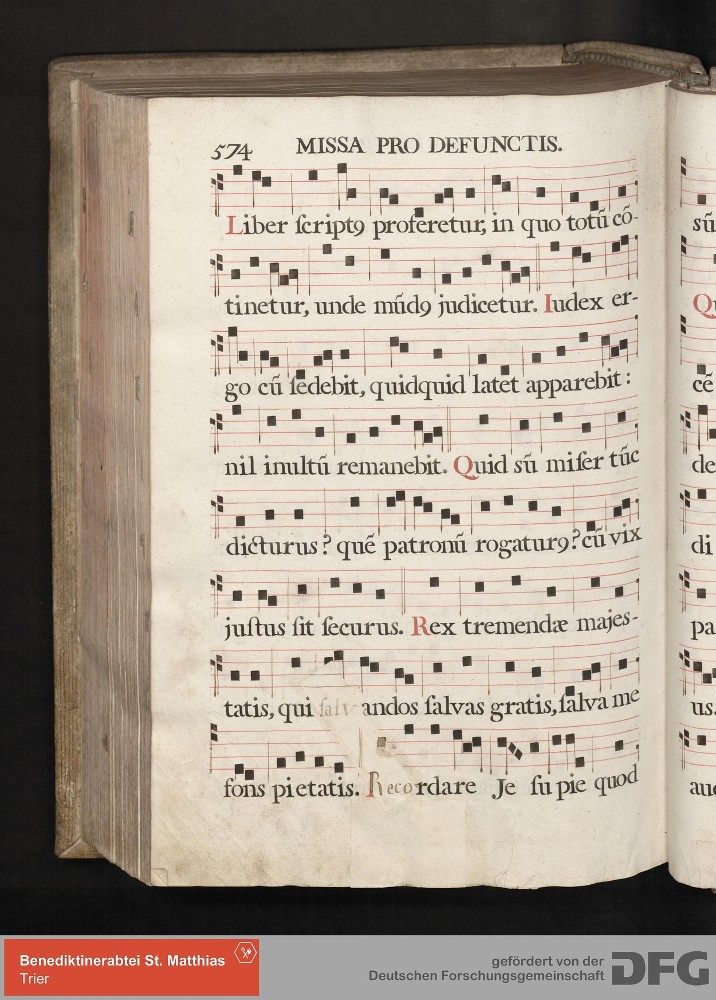 574 MISSA PRO DEFUNCTIS.
Liber ſcriptꝯ proferetur, in quo totū cō-
tinetur, unde mūdꝯ judicetur. Iudex er-
go cū ſedebit, quidquid latet apparebit:
nil inultū remanebit. Quid sū miſer tūc
dicturus? quē patronū rogaturꝯ? cū vix
juſtus ſit ſecurus. Rex tremendæ majes-
tatis, qui ſalvandos ſalvas gratis, ſalva me
fons pietatis. Recordare Je ſu pie quod
sū
Qu
cē
de
di
pa
us.
auc
Benediktinerabtei St. Matthias
Trier
gefördert von der
Deutschen Forschungsgemeinschaft DFG